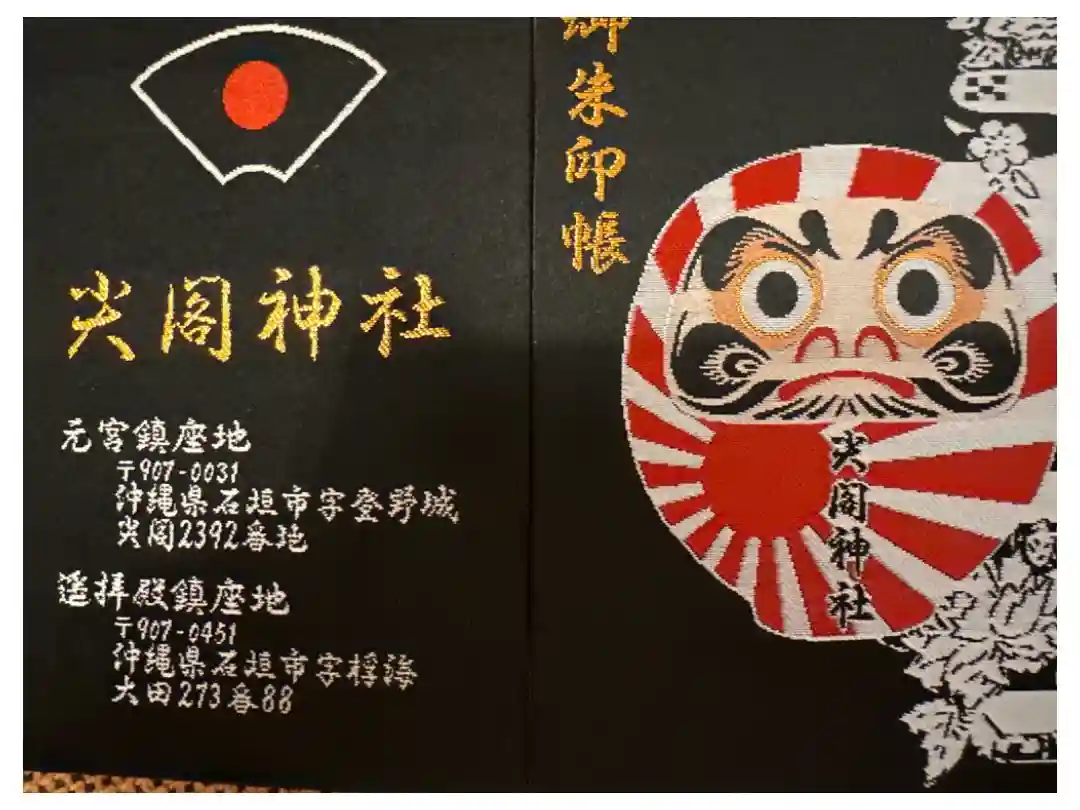 尖閣神社
元宮鎮座地
〒907-0031
沖縄県石垣市字登野城
尖閣2392番地
遥拝殿鎮座地
〒907-0451
沖縄県石垣市字桴海
大田273番88
御朱印帳
尖閣神社